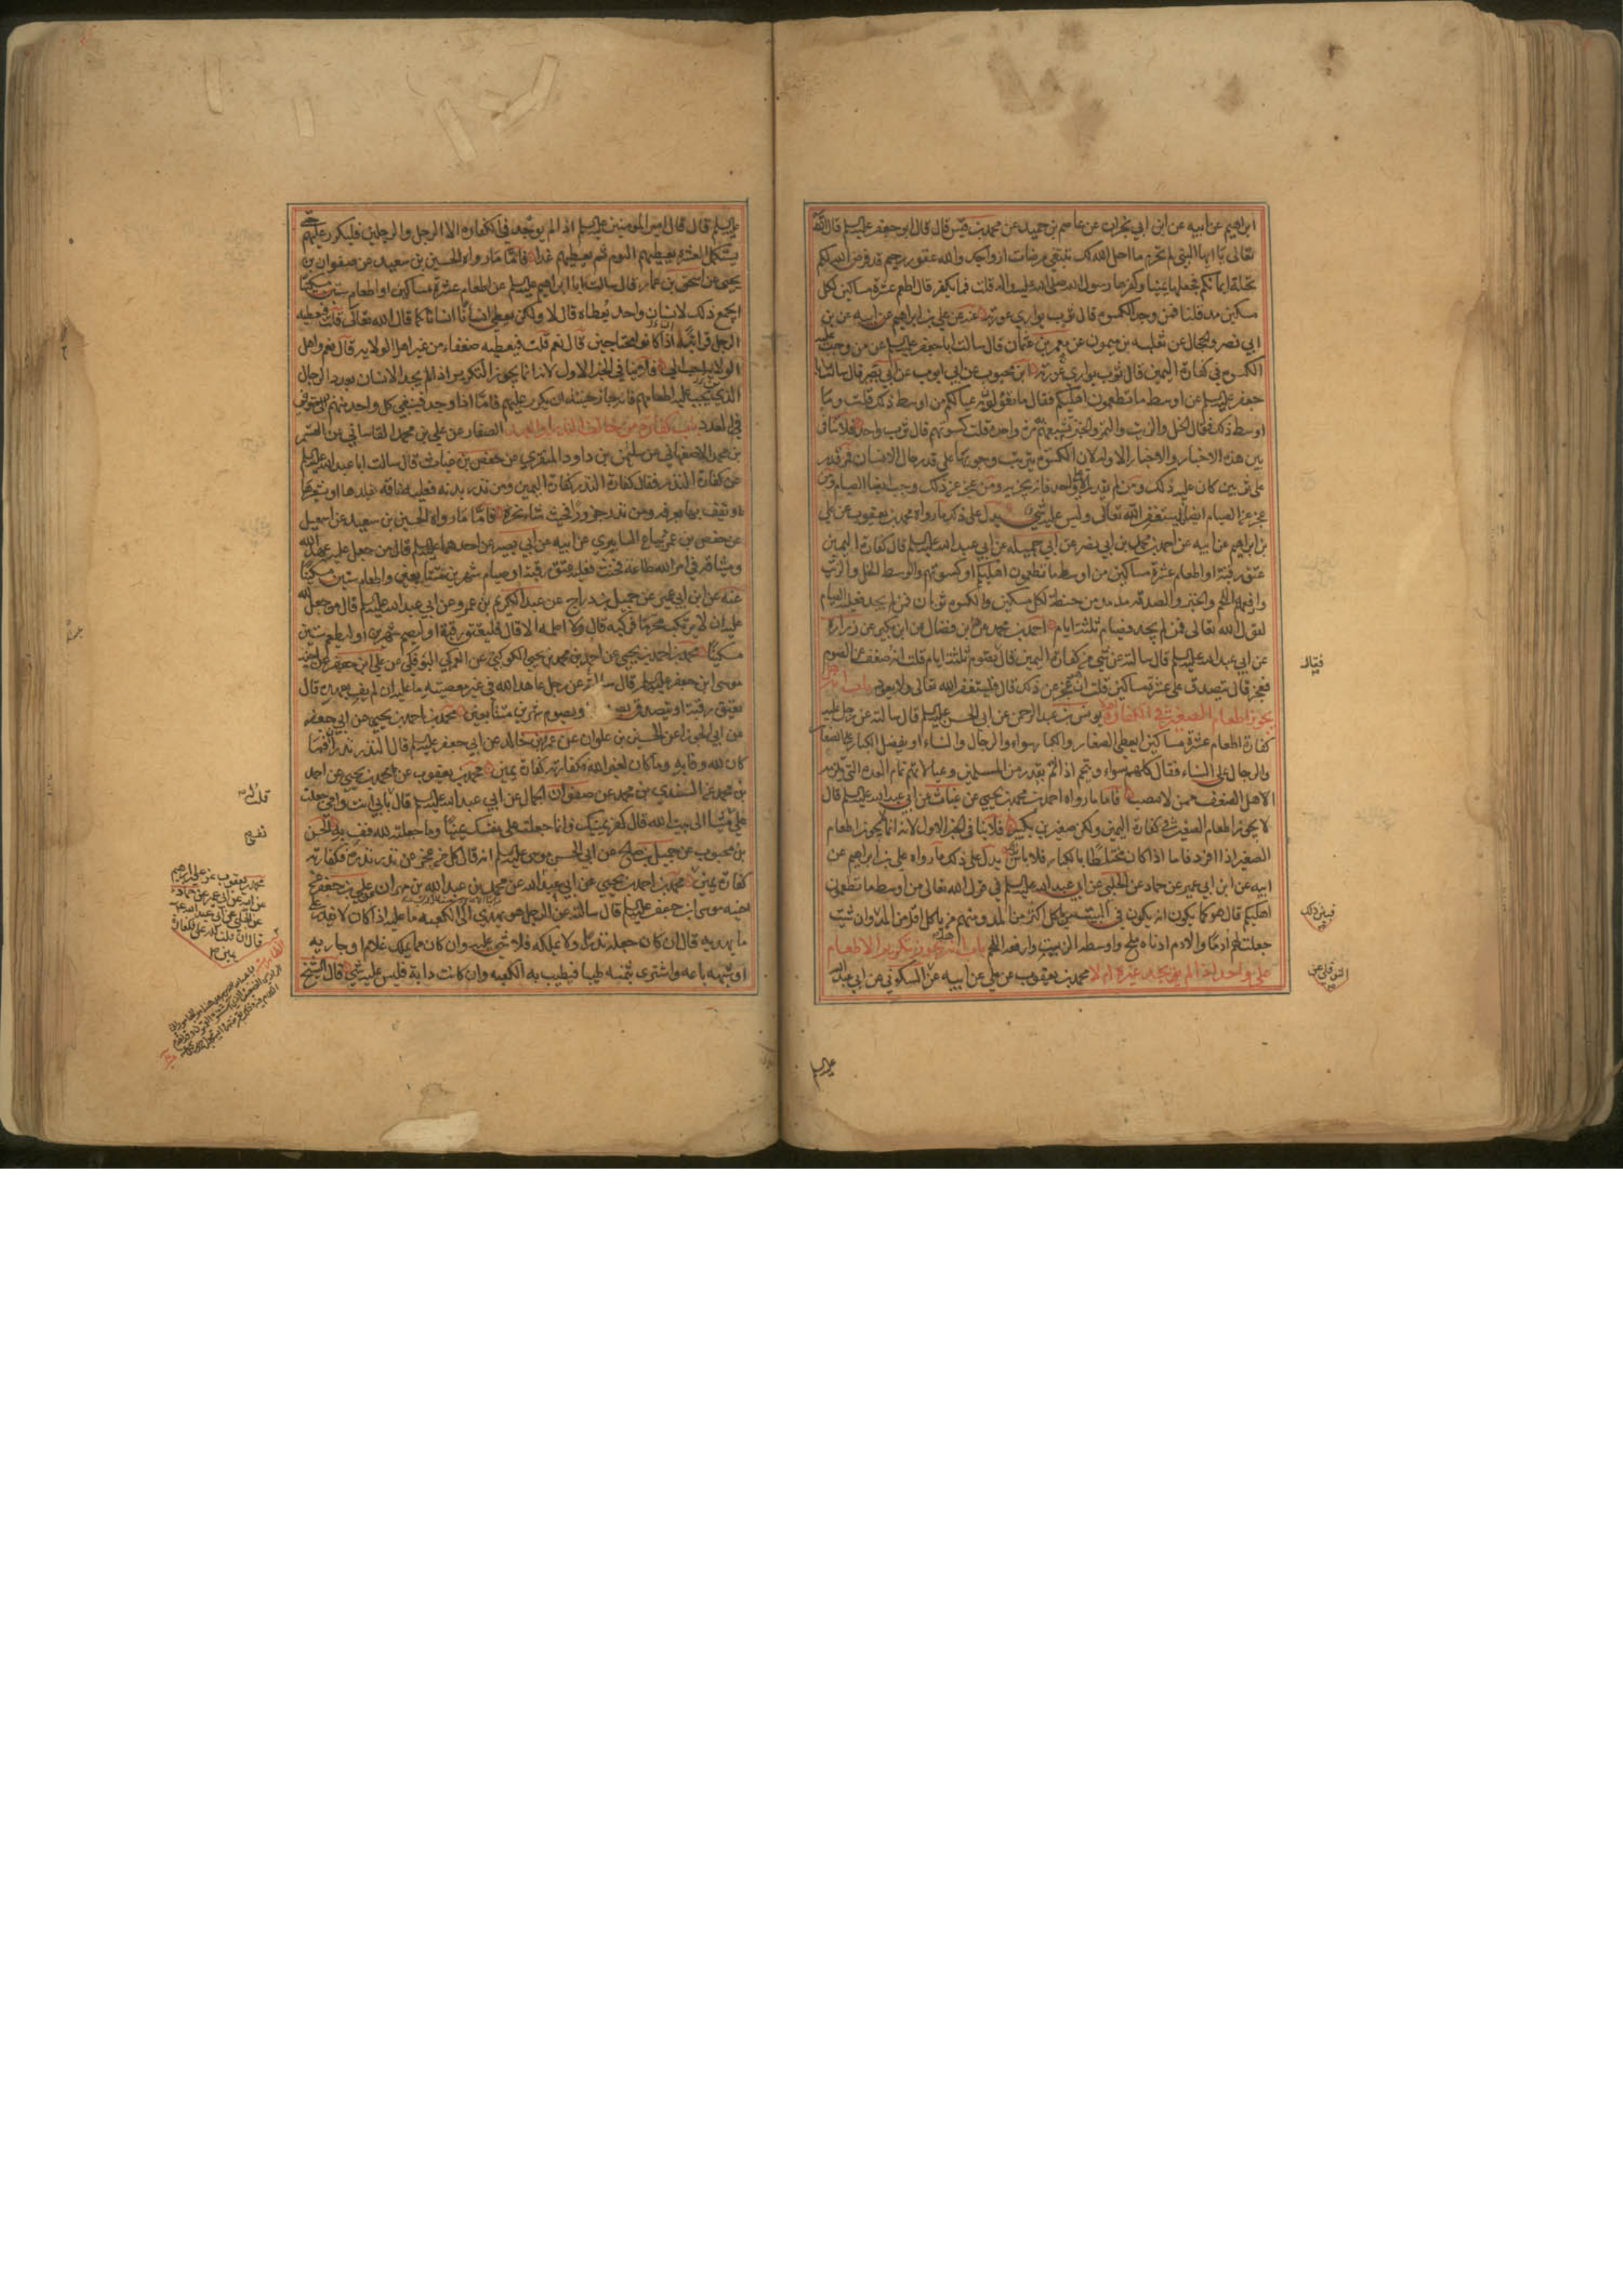 ابراهيم عن ابيه عن ابن ابي نجران عن عاصم بن حميد عن محمد بن قيس قال قال ابو جعفر عليه السلم قال الله
تعالى يا ايها النبي لم تحرم ما احل الله لك تبتغي مرضات ازواجك والله غفور رحيم قد فرض الله لكم
تحلة ايمانكم فجعلها يمينا وكفرها رسول الله صلى الله عليه واله قلت فما يكفر قال اطعم عشرة مساكين لكل
مسكين مد قلنا فمن وجد الكسوة قال ثوب يواري عورته عنه عن علي بن ابراهيم عن ابيه عن بن
ابي نصر والحجال عن ثعلبه بن ميمون عن معمر بن عثمان قال سالت ابا جعفر عليه السلم عن من وجب عليه
الكسوة في كفارة اليمين قال ثوب يواري عورته ابن محبوب عن ابي ايوب عن ابي بصير قال سالت ابا
جعفر عليه السلم عن اوسط ما تطعمون اهليكم فقال ما تقوتون به عيالكم من اوسط ذلك قلت وما
اوسط ذلك فقال الخل والزيت والتمر والخبز تشبعهم مرة واحدة قلت كسوتهم قال ثوب واحد فلا تنافي
بين هذه الاخبار والاخبار الاوله لان الكسوة يترتب وجوبها على قدر حال الانسان فمن قدر
على ثوبين كان عليه ذلك ومن لم يقدر الا على الواحد فانه يجزيه ومن عجز عن ذلك وجب ايضا الصيام فمن
عجز عن الصيام ايضا فليستغفر الله تعالى وليس عليه شيء يدل على ذلك ما رواه محمد بن يعقوب عن علي
بن ابراهيم عن ابيه عن احمد بن محمد بن ابي نصر عن ابي جميله عن ابي عبد الله عليه السلم قال كفارة اليمين
عتق رقبة او اطعام عشرة مساكين من اوسط ما تطعمون اهليكم او كسوتهم والوسط الخل والزيت
وارفعه اللحم والخبز والصدقه مد مد من حنطة لكل مسكين والكسوه ثوبان فمن لم يجد فعليه الصيام
لقول الله تعالى فمن لم يجد فصيام ثلثة ايام احمد بن محمد عن بن فضال عن ابن بكير عن زرارة
عن ابي عبد الله عليه السلم قال سالته عن شي من كفارة اليمين قال يصوم ثلثة ايام قلت انه ضعف عن الصوم
فعجز قال تصدق على عشرة مساكين قلت انه عجز عن ذلك قال فليستغفر الله تعالى ولا يعود باب انه هل
يجوز اطعام الصغير في الكفارة يونس بن عبد الرحمن عن ابي الحسن عليه السلم قال سالته عن رجل عليه
كفارة اطعام عشرة مساكين ايعطي الصغار والكبار سواء والرجال والنساء او يفضل الكبار على الصغار
والرجال على النساء فقال كلهم سواء ويتمم اذا لم يقدر من المسلمين وعيالاتهم تمام العده التي تلزمه
الاهل الضعف ممن لا ينصب فاما ما رواه احمد بن محمد بن يحيى عن غياث عن ابي عبد الله عليه السلم قال
لا يجوز اطعام الصغير في كفارة اليمين ولكن صغيرين بكبير فلا ينافي الخبر الاول لانه انما يجوز اطعام
الصغير اذا افرد فاما اذا كان مختلطا بالكبار فلا باس به يدل على ذلك ما رواه علي بن ابراهيم عن
ابيه عن ابن ابي عمير عن حماد عن الحلبي عن ابي عبد الله عليه السلم في قول الله تعالى من اوسط ما تطعمون
اهليكم قال هو كما يكون انه يكون في البيت من ياكل اكثر من المد ومنهم من ياكل اقل من المد وان شئت
جعلت لهم أدمًا والادم ادناه ملح واوسطه الزيت وارفعه اللحم باب انه هل يجوز تكرير الاطعام
على واحد اذا لم يجد غيره ام لا محمد بن يعقوب عن علي عن ابيه عن السكوني عن ابي عبد الله
فقال
فبين ذلك
النوفلي عن
عليه السلم
عليه السلم قال قال امير المومنين عليه السلم اذا لم يوجد في الكفاره الا الرجل والرجلين فليكرر عليهم حتى
يستكمل العشرة يعطيهم اليوم ثم يعطيهم غدا فاما ما رواه الحسين بن سعيد عن صفوان بن
يحيى عن اسحق بن عمار قال سالت ابا ابراهيم عليه السلم عن اطعام عشرة مساكين او اطعام ستين مسكينا
ايجمع ذلك لانسان واحد يعطاه قال لا ولكن يعطي انسانا انسانا كما قال الله تعالى قلت فيعطيه
الرجل قرابته اذا كانوا محتاجين قال نعم قلت فيعطيه ضعفاء من غير اهل الولايه قال نعم واهل
الولاية احب الي فلا ينافي الخبر الاول لانه انما يجوز التكرير اذا لم يجد الانسان بعدد الرجال
الذي يجب عليه اطعامهم فانه جاز حينئذ ان يكرر عليهم فاما اذا وجد فينبغي كل واحد منهم
في العدد باب كفارة من خالف النذر او العهد الصفار عن علي بن محمد القاساني عن القسم
بن محمد الاصفهاني عن سليمن بن داود المنقري عن حفص بن غياث قال سالت ابا عبد الله عليه السلم
عن كفارة النذر فقال كفارة النذر كفارة اليمين ومن نذر بدنه فعليه ناقه يقلدها او يشعرها
ويقف بها بعرفه ومن نذر جزورا فحيث شاء نحره فاما ما رواه الحسين بن سعيد عن اسمعيل
عن حفص بن عمر بياع السابري عن ابيه عن ابي بصير عن احدهما عليه السلم قال من جعل عليه عهد الله
وميثاقه في امر لله طاعة فحنث فعليه عتق رقبة او صيام شهرين متتابعين او اطعام ستين مسكينا
عنه عن ابن ابي عمير عن جميل بن دراج عن عبد الكريم بن عمرو عن ابي عبد الله عليه السلم قال من جعل لله
عليه ان لا يركب محرما فركبه قال ولا اعلمه الا قال فليعتق رقبة او ليصم شهرين او ليطعم ستين
مسكينا محمد بن احمد بن يحيى عن احمد بن محمد بن يحيى الكوكبي عن العمركي البوفكي عن علي بن جعفر عن اخيه
موسى ابن جعفر عليه السلم قال سالته عن رجل عاهد الله في غير معصيته ما عليه ان لم يف بعهده قال
يعتق رقبة او يتصدق بصدقه ويصوم شهرين متتابعين محمد بن احمد بن يحيى عن ابي جعفر
عن ابي الجوزا عن الحسين بن علوان عن عمرو بن خالد عن ابي جعفر عليه السلم قال النذر نذران فما
كان لله وفا به وما كان لغير الله فكفارته كفارة يمين محمد بن يعقوب عن محمد بن يحيى عن احمد
بن محمد عن السندي بن محمد عن صفوان الجمال عن ابي عبد الله عليه السلم قال بابي انت وامي جعلت
علي مشيا الى بيت الله قال كفر يمينك فانما جعلت على نفسك يمينا وما جعلته لله فف به الحسن
بن محبوب عن جميل بن صالح عن ابي الحسن موسى عليه السلم انه قال كل من عجز عن نذر نذره فكفارته
كفارة يمين محمد بن احمد بن يحيى عن ابي عبد الله عن محمد بن عبد الله بن مهران عن علي بن جعفر عن
اخيه موسى بن جعفر عليه السلم قال سالته عن الرجل هو يهدي الى الكعبه ما عليه اذا كان لا يقدر على
ما يهديه قال ان كان جعله نذرا ولا يملكه فلا شيء عليه وان كان مما يملك غلام او جاريه
او شبهه باعه واشترى بثمنه طيبا فيطيب به الكعبه وان كانت دابة فليس عليه شي قال الشيخ
قلت له
نفسي
محمد بن يعقوب عن علي بن ابراهيم
عن ابيه عن ابن ابي عمير عن حماد
عن الحلبي عن ابي عبد الله عليه
قال ان قلت لله علي فكفارة
يمين